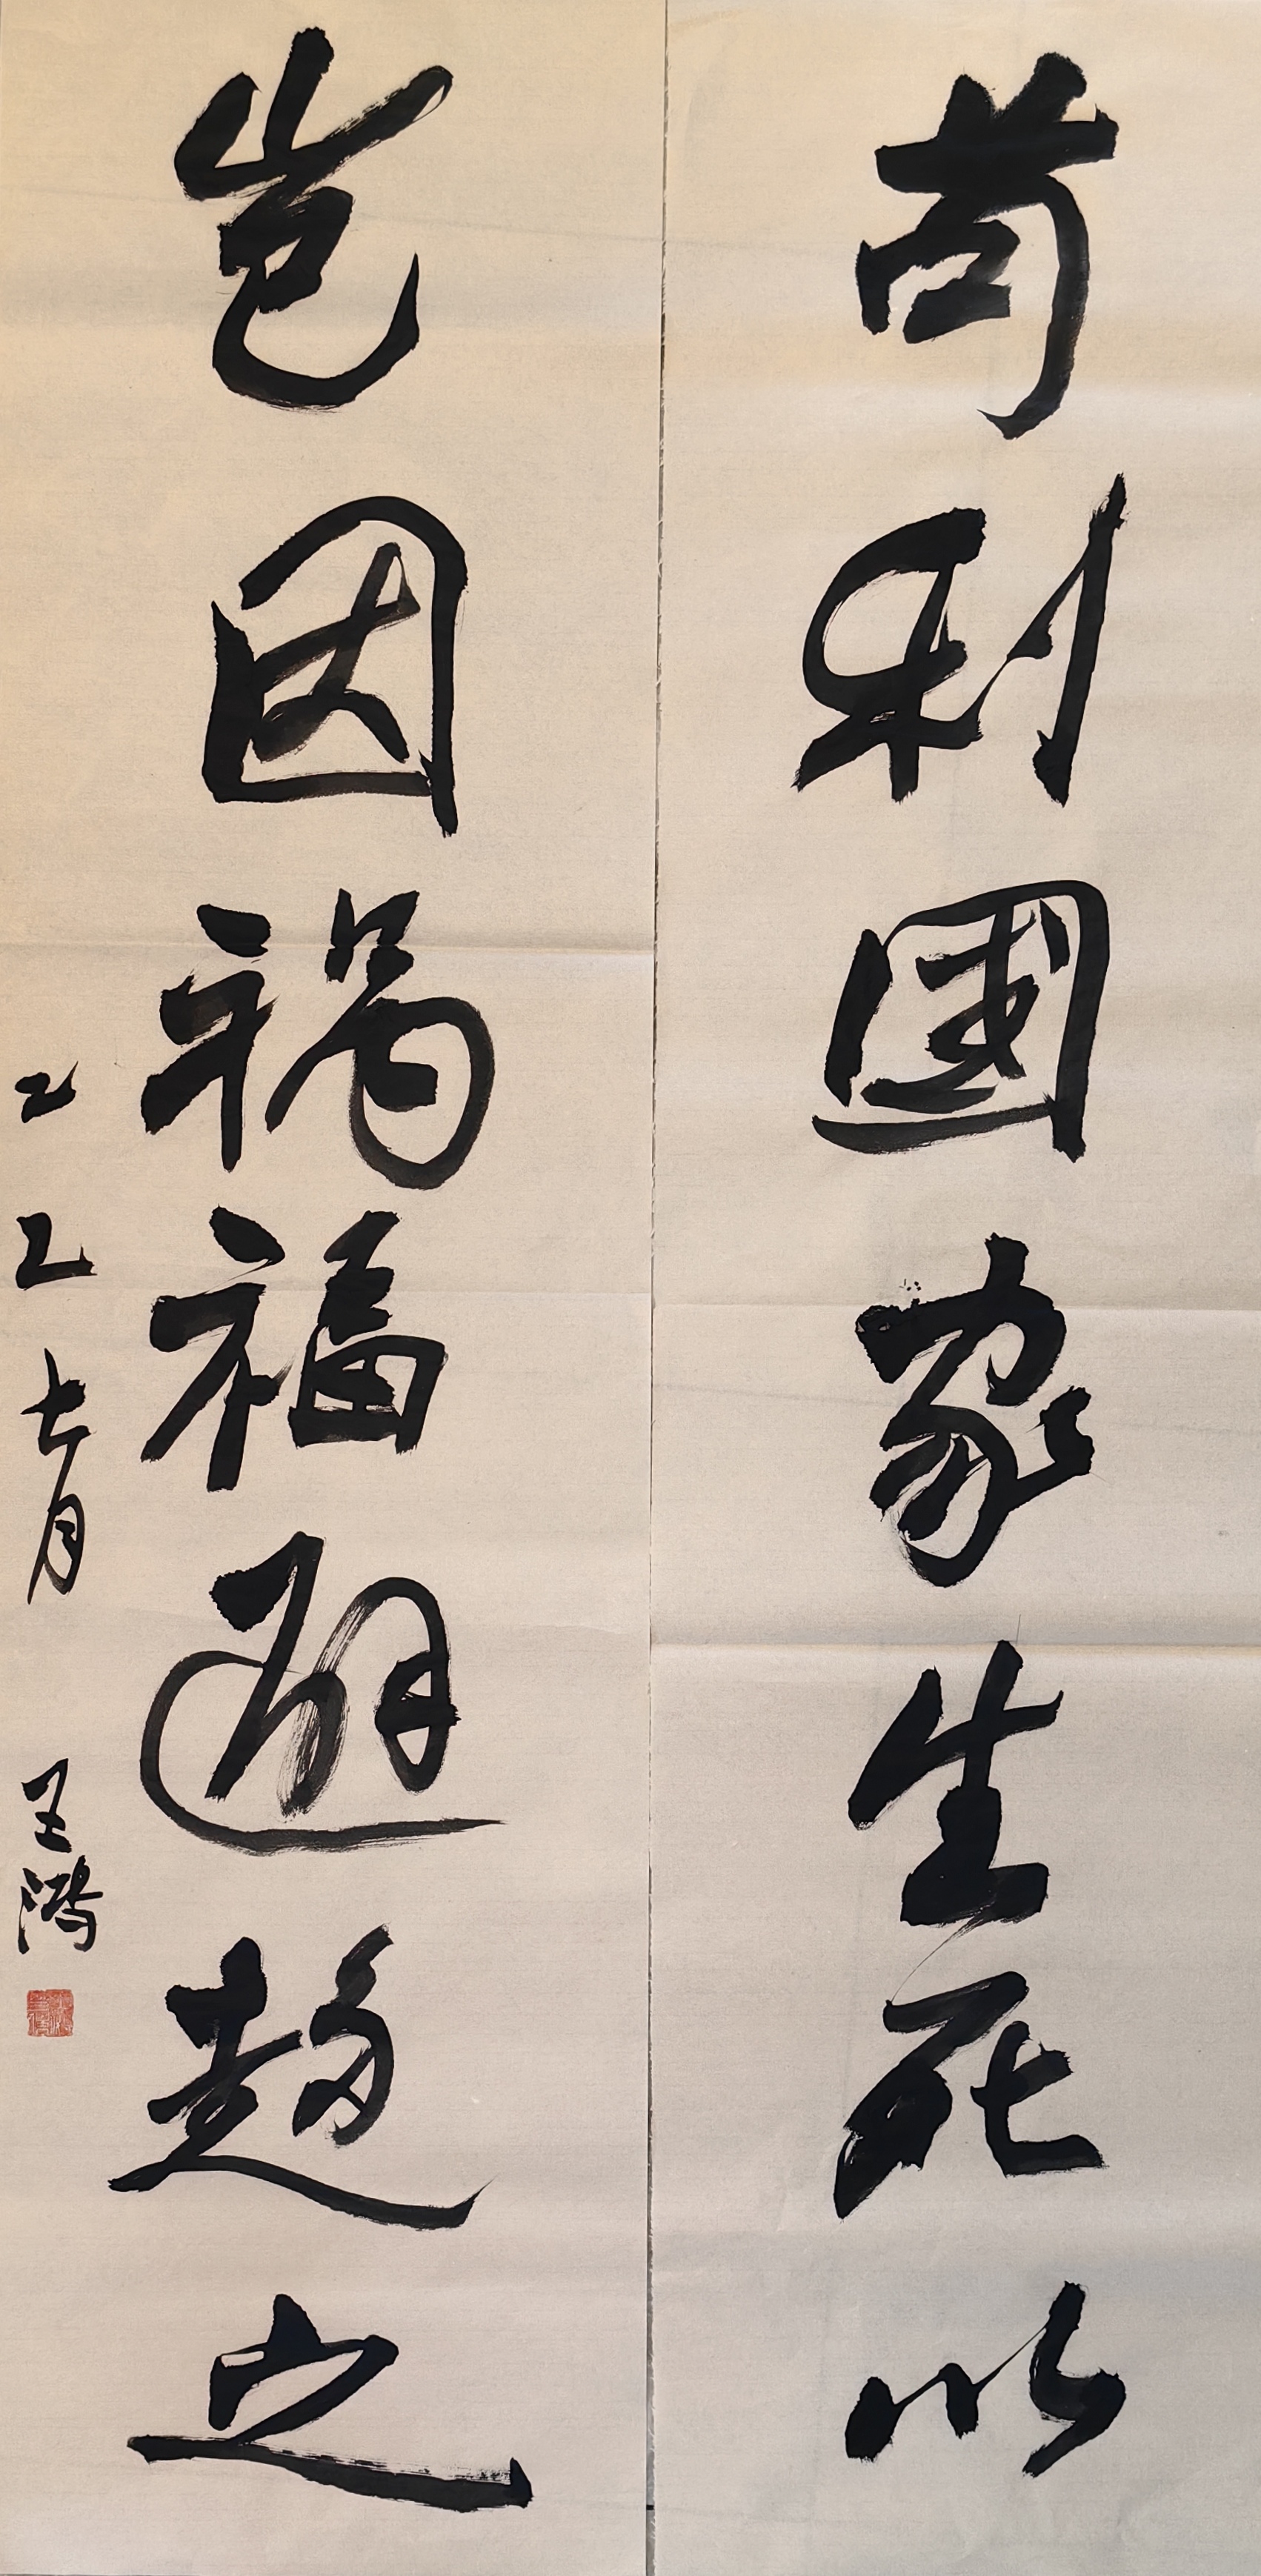 苟利國家生死以
豈因禍福避趨之
乙巳七月 王鴻